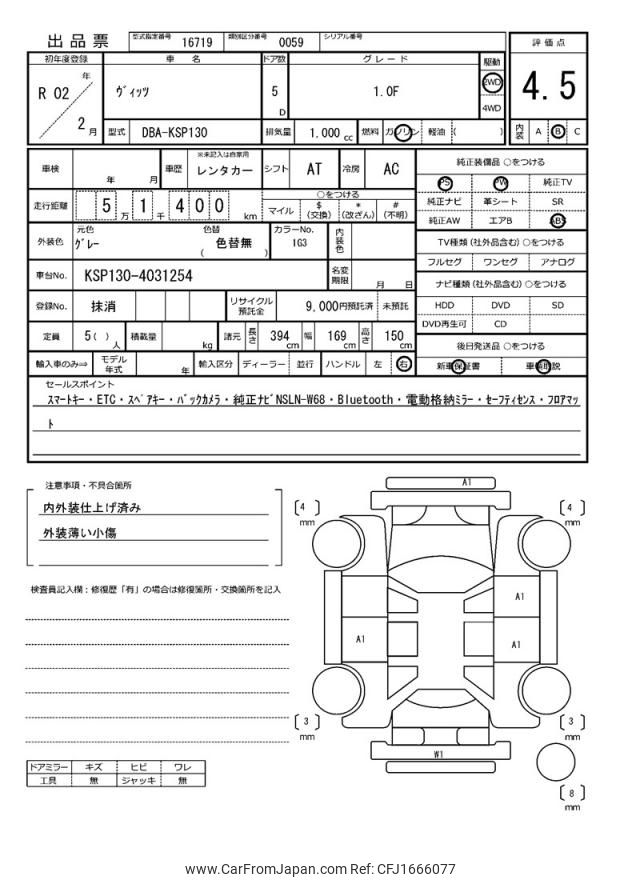 出品票
型式指定番号 16719 類別区分番号 0059 シリアル番号
初年度登録 車名 ドア数 グレード 駆動 評価点
R 02 年 2 月 ヴィッツ 5 D 1.0F 2WD 4WD 4.5
型式 DBA-KSP130 排気量 1.000 cc 燃料 ガソリン 軽油 ( ) 内装 A B C
車検 年 月 車歴 ※未記入は自家用 レンタカー シフト AT 冷房 AC
純正装備品 ○をつける
PS PW 純正TV
純正ナビ 革シート SR
純正AW エアB ABS
走行距離 5 万 1 千 4 0 0 km ○をつける
マイル $ (交換) * (改ざん) # (不明)
外装色 元色 グレー 色替 色替無 ( ) カラーNo. 1G3 内装色
TV種類 (社外品含む) ○をつける
フルセグ ワンセグ アナログ
車台No. KSP130-4031254 名変期限 月 日
ナビ種類 (社外品含む) ○をつける
HDD DVD SD
DVD再生可 CD
登録No. 抹消 リサイクル預託金 9,000円預託済 未預託
定員 5( ) 人 積載量 kg 諸元 長さ 394 cm 幅 169 cm 高さ 150 cm
後日発送品 ○をつける
新車保証書 車輌取説
輸入車のみ⇒ モデル年式 年 輸入区分 ディーラー 並行 ハンドル 左 右
セールスポイント
スマートキー・ETC・スペアキー・バックカメラ・純正ナビNSLN-W68・Bluetooth・電動格納ミラー・セーフティセンス・フロアマッ
ト
注意事項・不具合箇所
内外装仕上げ済み
外装薄い小傷
検査員記入欄：修復歴「有」の場合は修復箇所・交換箇所を記入
A1
4 mm
4 mm
A1
A1
A1
3 mm
3 mm
W1
8 mm
ドアミラー キズ ヒビ ワレ
工具 無 ジャッキ 無
www.CarFromJapan.com Ref: CFJ1666077